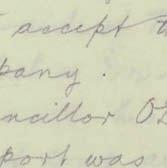 accept t
pany.
ncillor O'D
port was